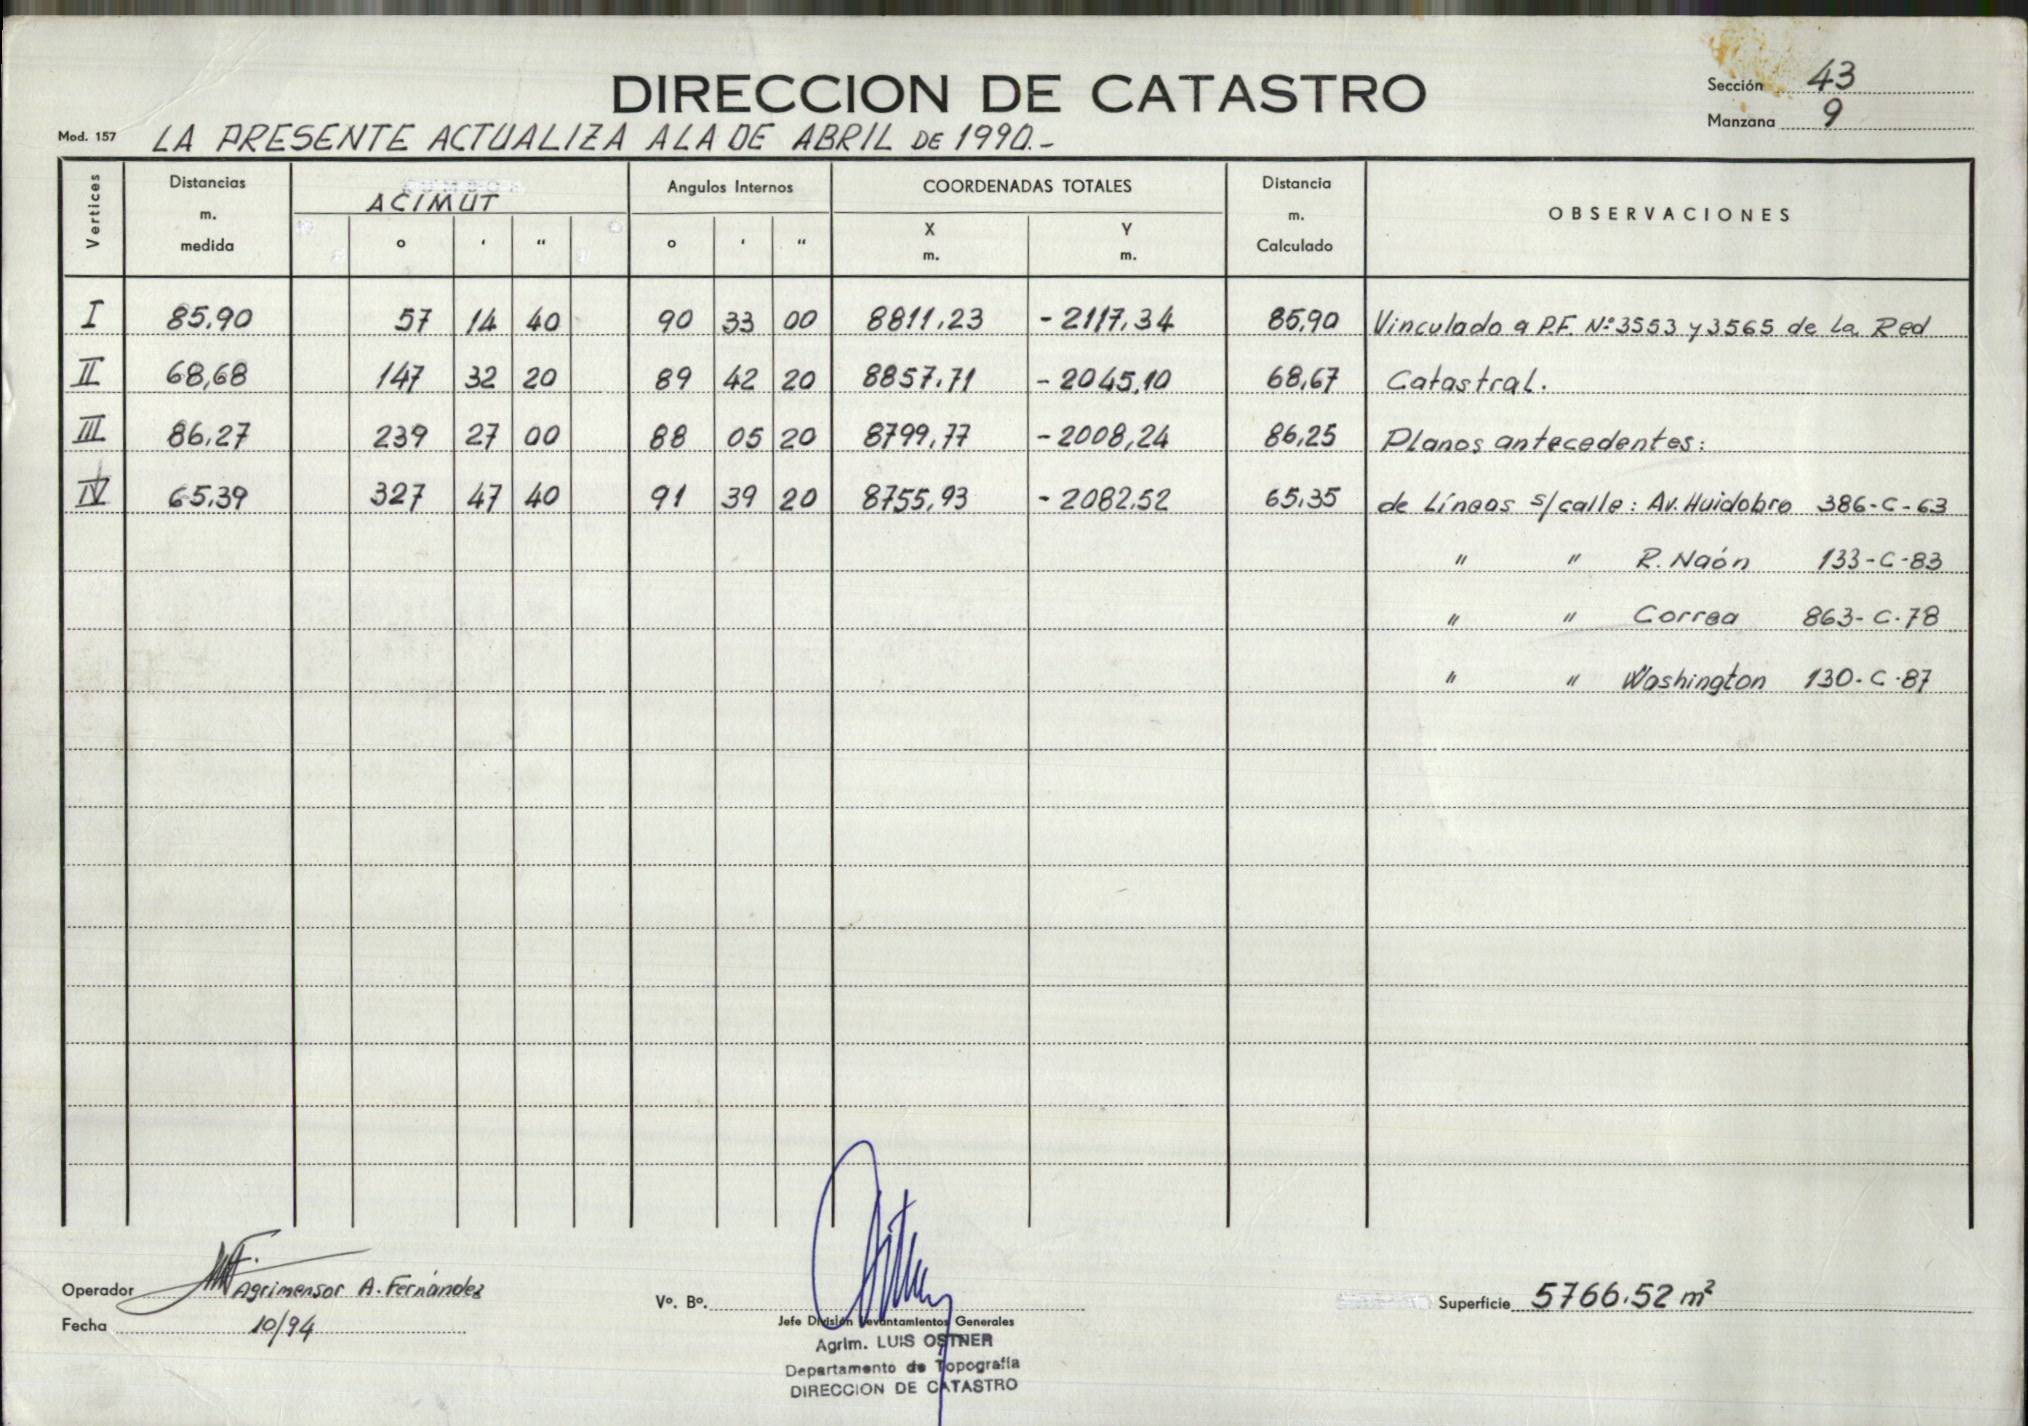 DIRECCION DE CATASTRO
Sección 43
Manzana 9
Mod. 157 LA PRESENTE ACTUALIZA A LA DE ABRIL DE 1990.-
Vertices Distancias m. medida ACIMUT ° ' " Angulos Internos ° ' " COORDENADAS TOTALES X m. Y m. Distancia m. Calculado OBSERVACIONES
I 85,90 57 14 40 90 33 00 8811,23 -2117,34 85,90 Vinculado a P.F. Nº 3553 y 3565 de la Red
II 68,68 147 32 20 89 42 20 8857,71 -2045,10 68,67 Catastral.
III 86,27 239 27 00 88 05 20 8799,77 -2008,24 86,25 Planos antecedentes:
IV 65,39 327 47 40 91 39 20 8755,93 -2082,52 65,35 de Líneas s/calle: Av. Huidobro 386-C-63
" " R. Naón 133-C-83
" " Correa 863-C-78
" " Washington 130-C-87
Operador Agrimensor A. Fernández
Fecha 10/94
Vº. Bº.
Jefe División Levantamientos Generales
Agrim. LUIS OSTNER
Departamento de Topografía
DIRECCION DE CATASTRO
Superficie 5766.52 m²